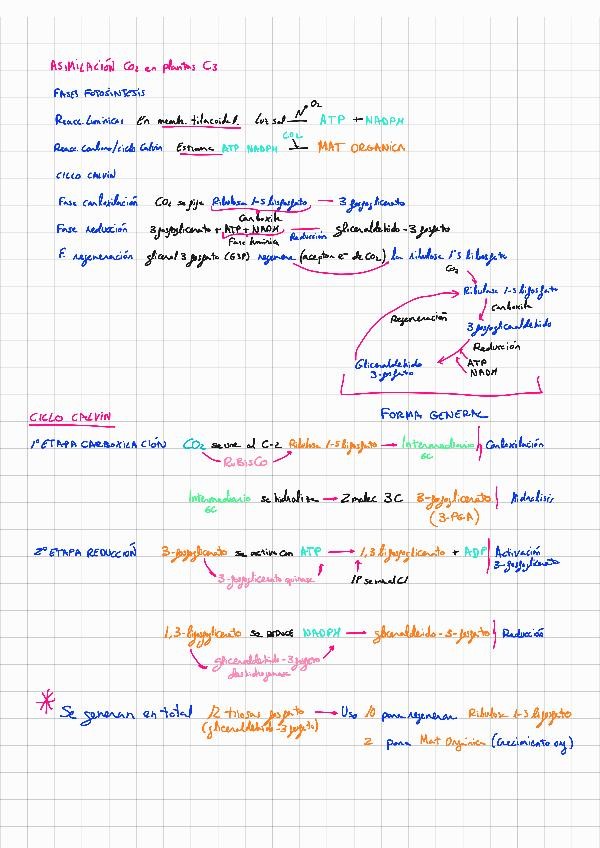 ASIMILACIÓN CO2 en plantas C3
FASES FOTOSÍNTESIS
Reacc. lumínicas En memb. tilacoidal. Luz sol O2 ATP + NADPH
Reacc. carbono/ciclo Calvin Estroma ATP NADPH CO2 MAT ORGANICA
CICLO CALVIN
Fase carboxilación CO2 se fija Ribulosa 1-5 bifosfato → 3 fosfoglicerato
Carboxila
Fase reducción 3 fosfoglicerato + ATP + NADH Reducción gliceraldehido-3-fosfato
Fase lumínica
F. regeneración gliceral 3 fosfato (G3P) regenera (aceptor e- de CO2) la ribulosa 1-5 bifosfato
CO2
Ribulosa 1-5 bifosfato
Carboxila
Regeneración
3 fosfogliceraldehido
Reducción
ATP
NADH
Gliceraldehido
3-fosfato
FORMA GENERAL
CICLO CALVIN
1º ETAPA CARBOXILACIÓN CO2 se une al C-2 Ribulosa 1-5 bifosfato → Intermediario 6C Carboxilación
RuBisCo
Intermediario 6C se hidroliza → 2 molec 3C 3-fosfoglicerato Hidrolisis
(3-PGA)
2º ETAPA REDUCCIÓN 3-fosfoglicerato se activa con ATP → 1,3 bifosfoglicerato + ADP Activación
3-fosfoglicerato
3-fosfoglicerato quinasa 1P se une al C1
1,3-bifosfoglicerato se REDUCE NADPH → gliceraldehido-3-fosfato Reducción
gliceraldehido-3 fosfato
deshidrogenasa
* Se generan en total 12 triosas fosfato → Uso 10 para regenerar Ribulosa 1-5 bifosfato
(gliceraldehido-3 fosfato)
2 para Mat Orgánica (Crecimiento org)